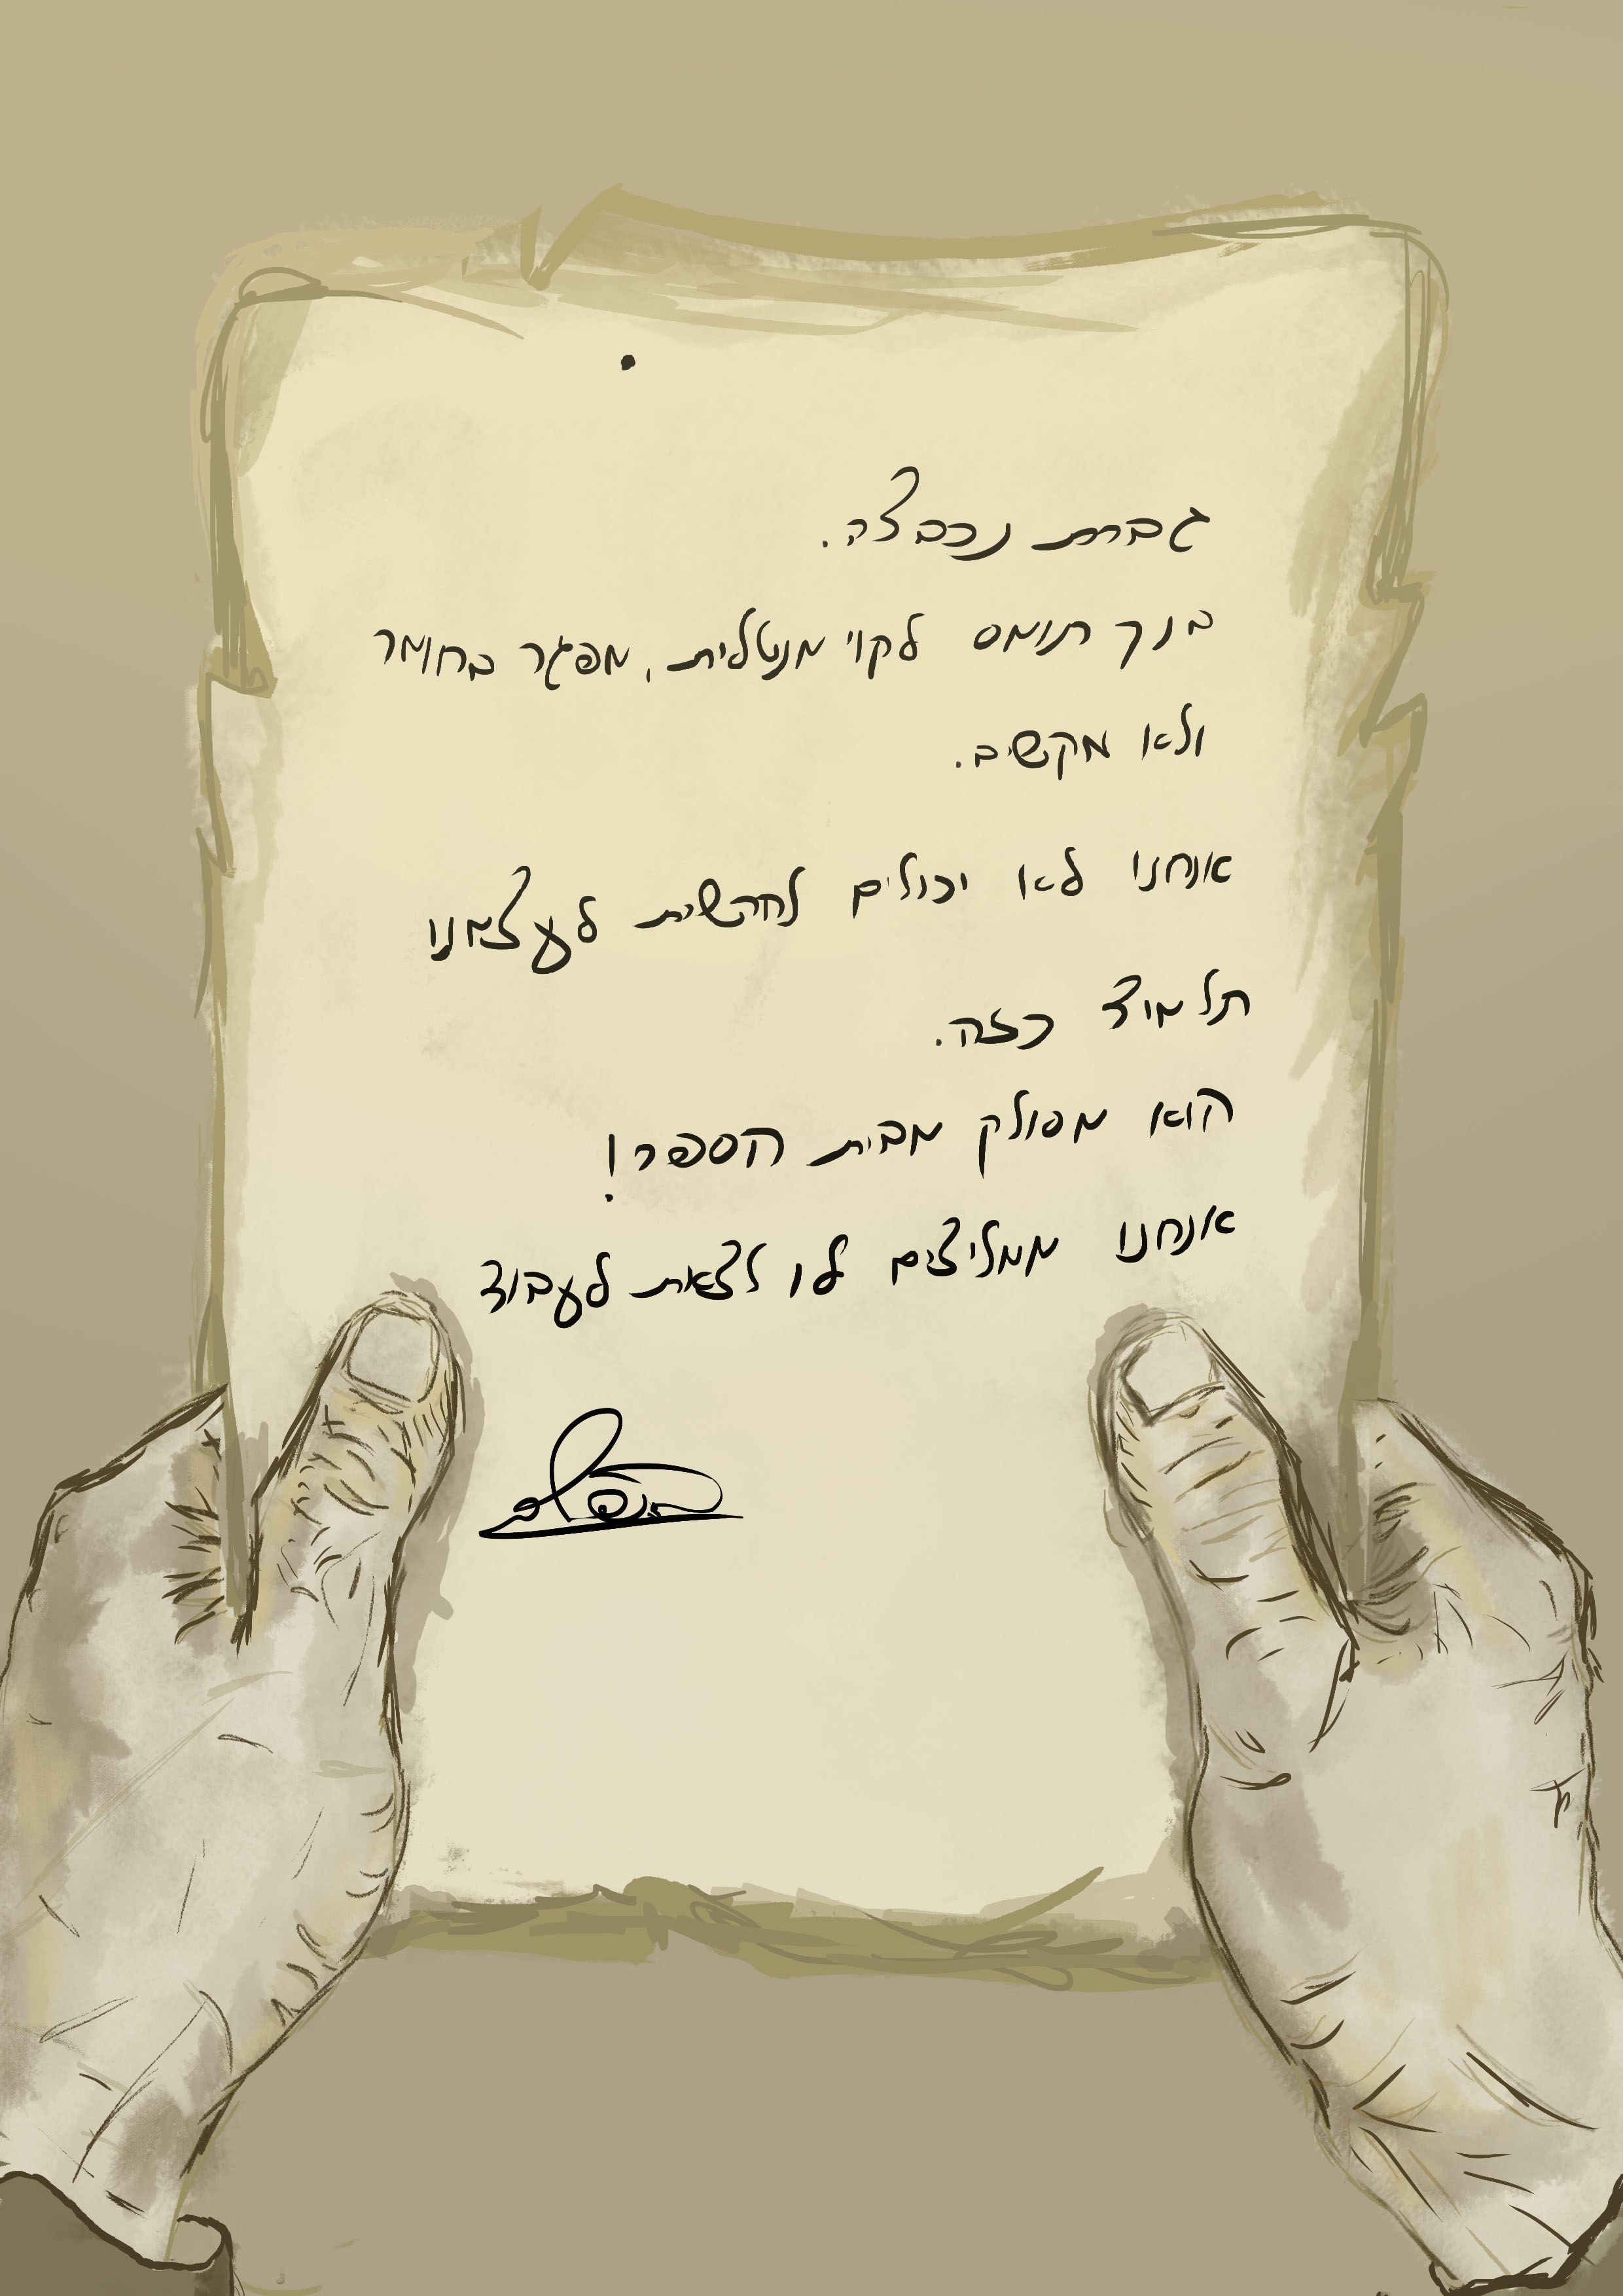 גברת נכבצה.
בנך תומס לקוי מנטלית, מפגר בחומר
ולא מקשיב.
אנחנו לא יכולים להרשות לעצמנו
תלמיד כזה.
הוא מסולק מבית הספר!
אנחנו ממליצים לו לצאת לעבוד